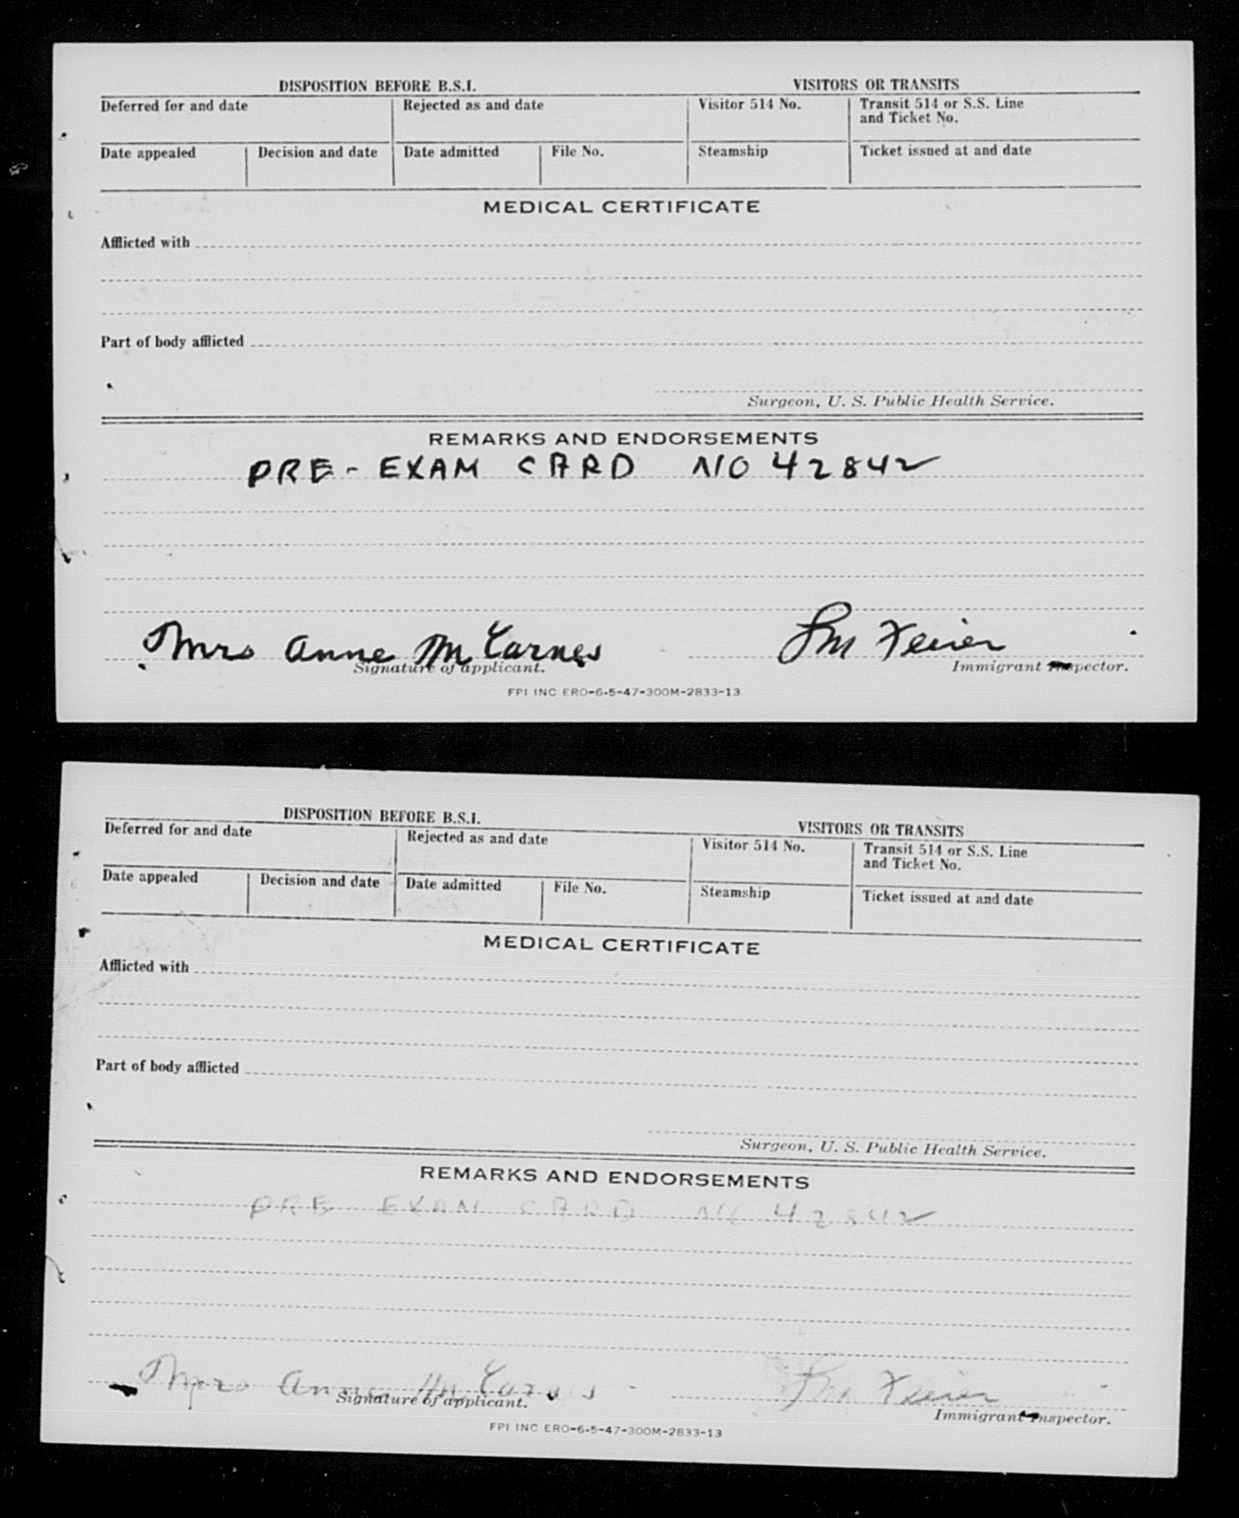 DISPOSITION BEFORE B.S.I. VISITORS OR TRANSITS
Deferred for and date Rejected as and date Visitor 514 No. Transit 514 or S.S. Line and Ticket No.
Date appealed Decision and date Date admitted File No. Steamship Ticket issued at and date
MEDICAL CERTIFICATE
Afflicted with
Part of body afflicted
Surgeon, U. S. Public Health Service.
REMARKS AND ENDORSEMENTS
PRE-EXAM CARD NO 42842
Mrs Anne M Carnes
Signature of applicant. Immigrant Inspector.
FPI INC ERO-6-5-47-300M-2833-13
DISPOSITION BEFORE B.S.I. VISITORS OR TRANSITS
Deferred for and date Rejected as and date Visitor 514 No. Transit 514 or S.S. Line and Ticket No.
Date appealed Decision and date Date admitted File No. Steamship Ticket issued at and date
MEDICAL CERTIFICATE
Afflicted with
Part of body afflicted
Surgeon, U. S. Public Health Service.
REMARKS AND ENDORSEMENTS
PRE EXAM CARD NO 42842
Mrs Anne M Carnes
Signature of applicant. Immigrant Inspector.
FPI INC ERO-6-5-47-300M-2833-13